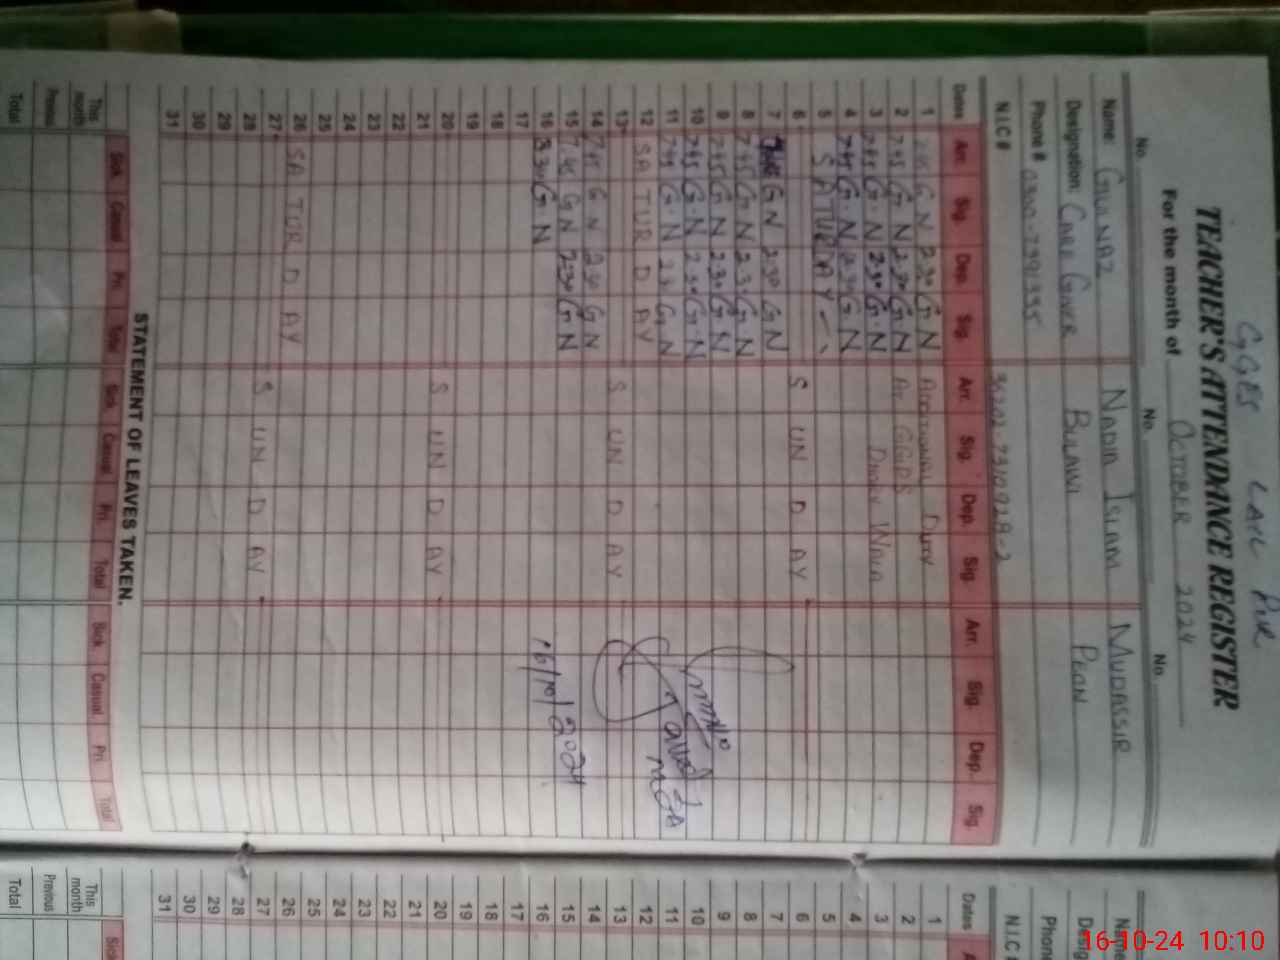 GGES LAIL PUR
TEACHER'S ATTENDANCE REGISTER
For the month of OCTOBER 2024
No. No. No.
Name: GULNAZ NADIA ISLAM MUDASSIR
Designation: CARE GIVER BULAWI PEON
Phone #
N.I.C #
Dates Arr. Sig. Dep. Sig. Arr. Sig. Dep. Sig. Arr. Sig. Dep. Sig.
1 7:45 G N 2:30 G N ADDITIONAL DUTY
2 7:45 G N 2:30 G N AT GGPS
3 7:45 G.N 2:30 G.N WALA
4 7:45 G N 2:30 G N
5 SATURDAY
6 S UN D AY
7 7:45 G N 2:30 G N
8 7:45 G N 2:30 G N
9 7:45 G N 2:30 G N
10 7:45 G.N 2:30 G.N
11 7:45 G.N 2:30 G N
12 SA TUR D AY
13 S UN D AY
14 7:45 G N 2:30 G N
15 7:45 G N 2:30 G N
16 8:30 G.N 16/10/2024
17
18
19
20 S UN D AY
21
22
23
24
25
26 SA TUR D AY
27 S UN D AY
28
29
30
31
STATEMENT OF LEAVES TAKEN.
Sick. Casual Pri. Total Sick. Casual Pri. Total Sick. Casual. Pri. Total
This month
Previous
Total
Name
Desig
Phone
N.I.C #
Dates
1
2
3
4
5
6
7
8
9
10
11
12
13
14
15
16
17
18
19
20
21
22
23
24
25
26
27
28
29
30
31
Sick
This month
Previous
Total
16-10-24 10:10